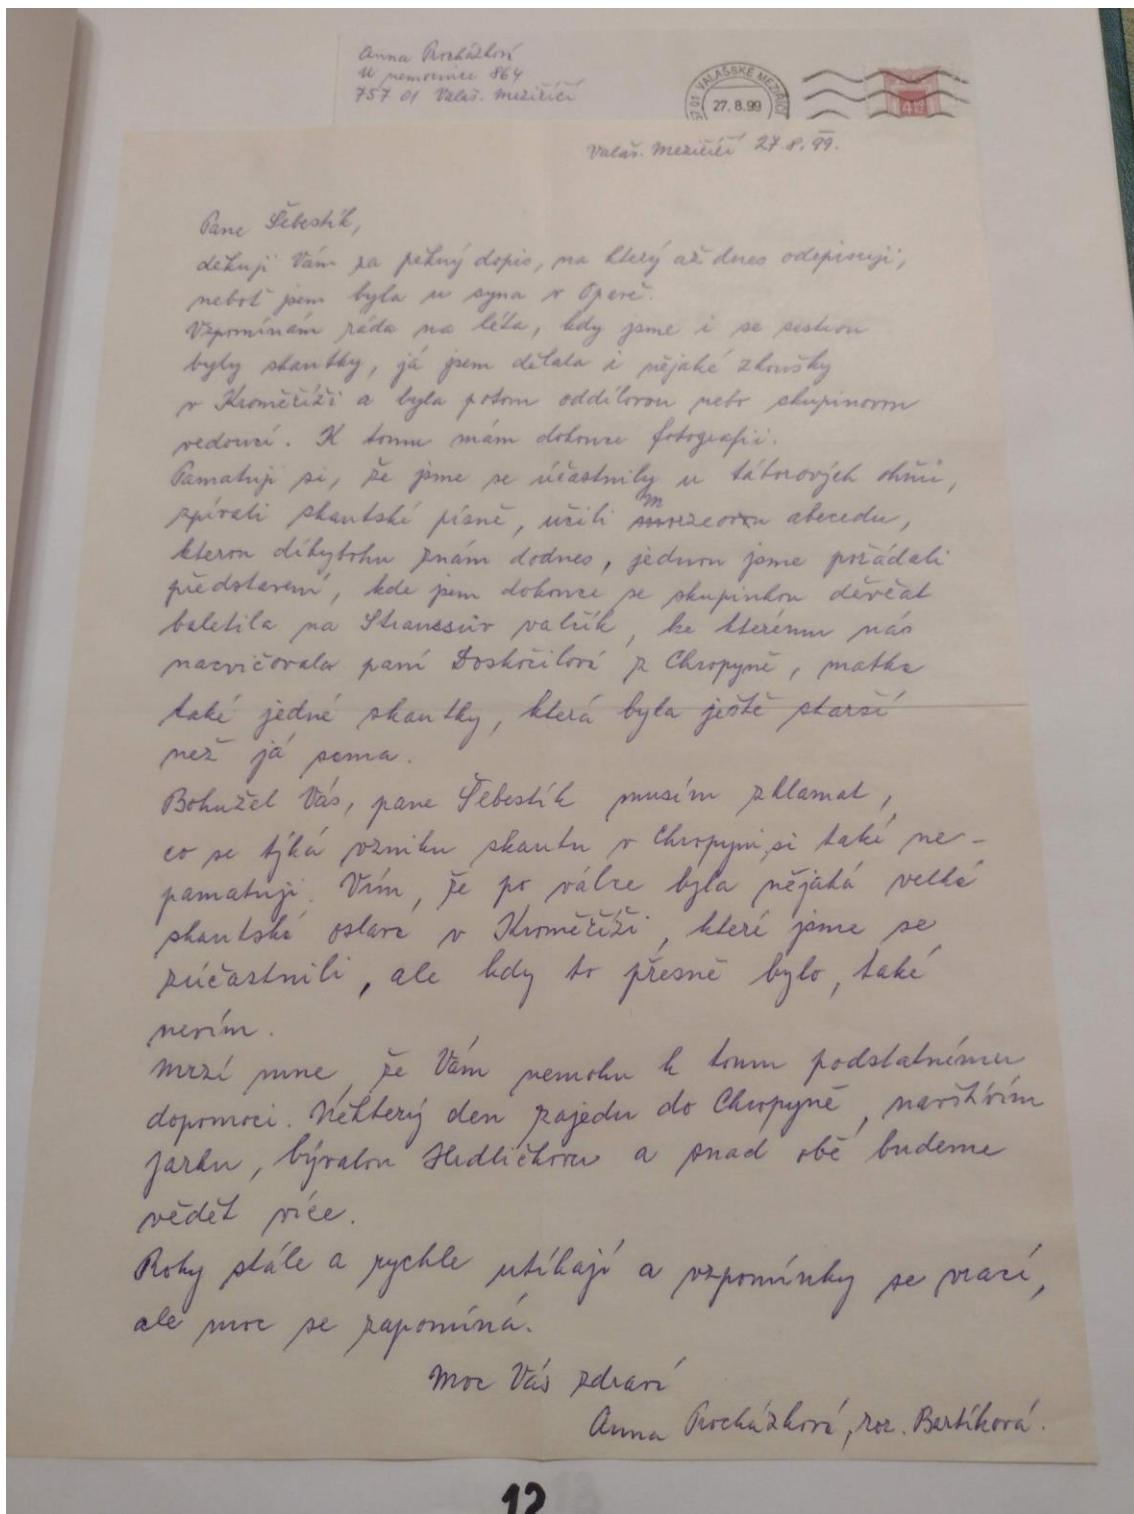 Anna Procházková
U nemocnice 864
757 01 Valaš. Meziříčí
757 01 VALAŠSKÉ MEZIŘÍČÍ
27.8.99
Valaš. Meziříčí 27.8.99.
Pane Šebestík,
děkuji Vám za pěkný dopis, na který až dnes odepisuji,
neboť jsem byla u syna v Opavě.
Vzpomínám ráda na léta, kdy jsme i se sestrou
byly skautky, já jsem dělala i nějaké zkoušky
v Kroměříži a byla potom oddílovou nebo skupinovou
vedoucí. K tomu mám dokonce fotografii.
Pamatuji si, že jsme se účastnily u táborových ohňů,
zpívali skautské písně, učili morzeovu abecedu,
kterou díkybohu znám dodnes, jednou jsme pořádali
představení, kde jsem dokonce se skupinkou děvčat
baletila na Straussův valčík, ke kterému nás
nacvičovala paní Doskočilová z Chropyně, matka
také jedné skautky, která byla ještě starší
než já sama.
Bohužel Vás, pane Šebestík musím zklamat,
co se týká vzniku skautu v Chropyni, si také ne-
pamatuji. Vím, že po válce byla nějaká velká
skautská oslava v Kroměříži, které jsme se
zúčastnili, ale kdy to přesně bylo, také
nevím.
Mrzí mne, že Vám nemohu k tomu podstatnému
dopomoci. Některý den zajedu do Chropyně, navštívím
Jarku, bývalou Hedličkovu a snad obě budeme
vědět více.
Roky stále a rychle utíkají a vzpomínky se vrací,
ale moc se zapomíná.
Moc Vás zdraví
Anna Procházková, roz. Bartíková.
12